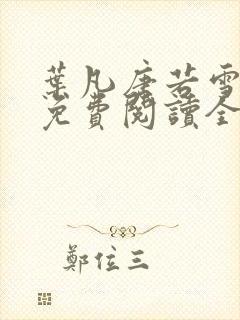 葉凡唐若雪
免費閱讀全
鄭位三